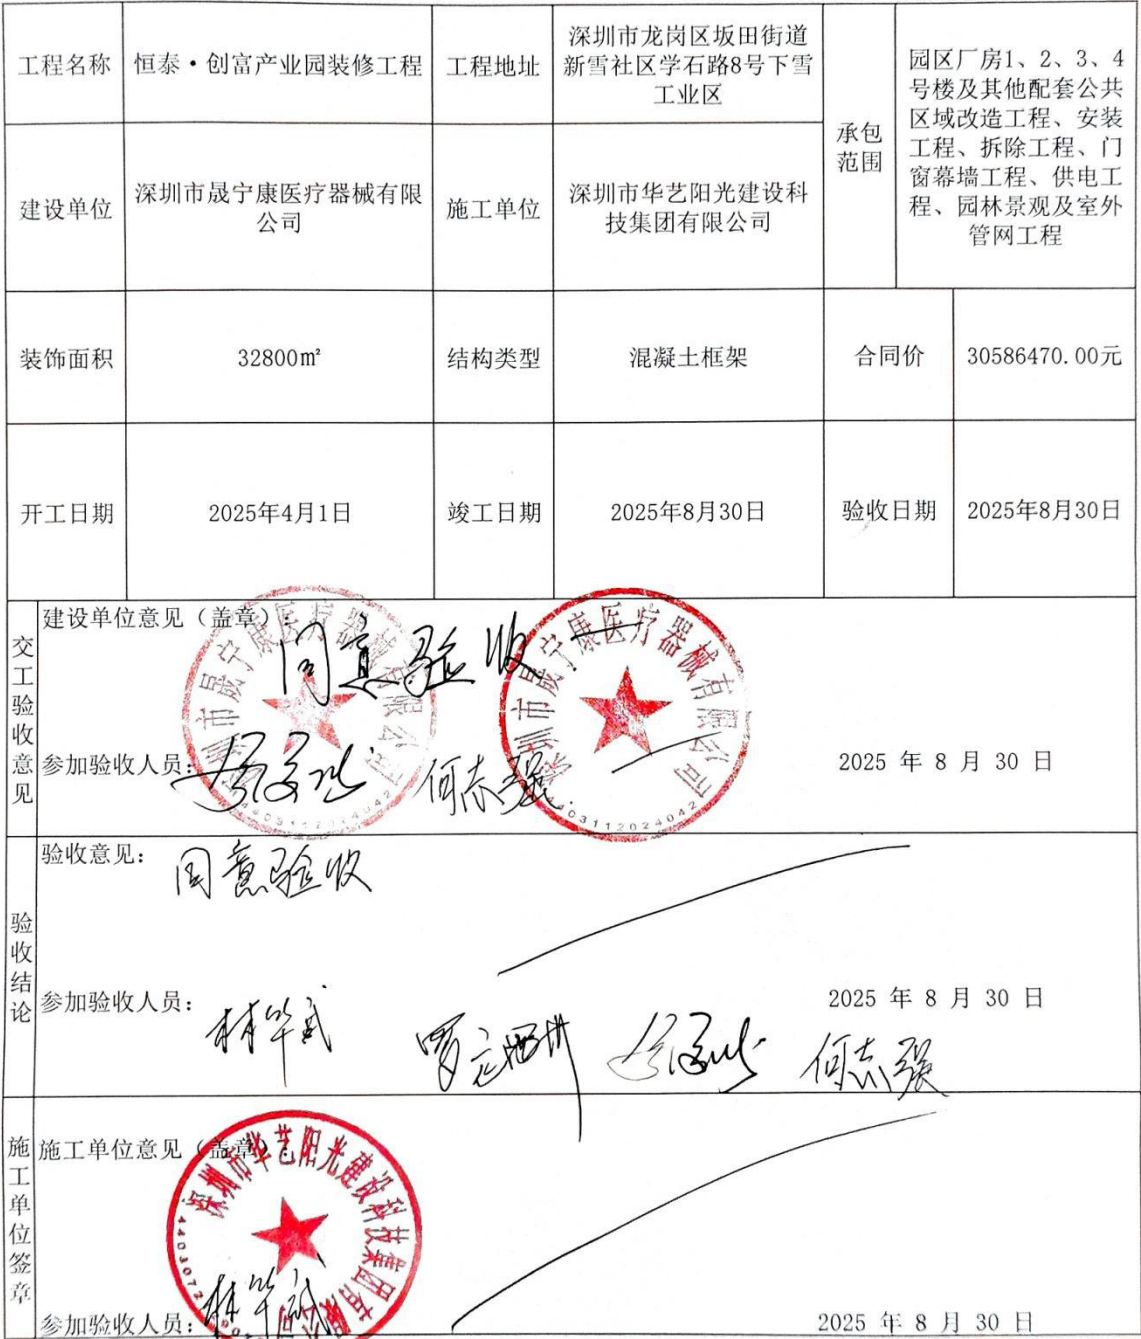 工程名称
恒泰·创富产业园装修工程
工程地址
深圳市龙岗区坂田街道
新雪社区学石路8号下雪
工业区
承包
范围
园区厂房1、2、3、4
号楼及其他配套公共
区域改造工程、安装
工程、拆除工程、门
窗幕墙工程、供电工
程、园林景观及室外
管网工程
建设单位
深圳市晟宁康医疗器械有限
公司
施工单位
深圳市华艺阳光建设科
技集团有限公司
装饰面积
32800㎡
结构类型
混凝土框架
合同价
30586470.00元
开工日期
2025年4月1日
竣工日期
2025年8月30日
验收日期
2025年8月30日
交工验收意见
建设单位意见（盖章）：
同意验收
深圳市晟宁康医疗器械有限公司
深圳市晟宁康医疗器械有限公司
参加验收人员：
何志强
2025 年 8 月 30 日
验收结论
验收意见：
同意验收
参加验收人员：
何志强
2025 年 8 月 30 日
施工单位签章
施工单位意见（盖章）：
深圳市华艺阳光建设科技集团有限公司
参加验收人员：
2025 年 8 月 30 日